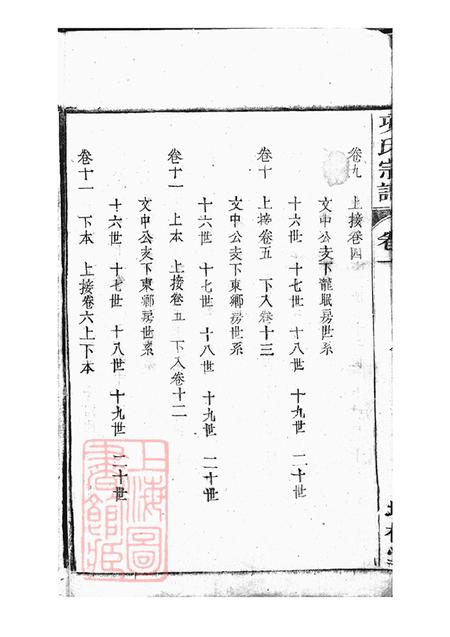 氏宗譜
卷
卷九　上接卷四
文中公支下龍眠房世系
十六世　十七世　十八世　十九世　二十世
卷十　上接卷五　下入卷十三
文中公支下東鄉房世系
十六世　十七世　十八世　十九世　二十世
卷十一　上本　上接卷五　下入卷十二
文中公支下東鄉房世系
十六世　十七世　十八世　十九世　二十世
卷十一　下本　上接卷六上下本
上海圖
書館藏